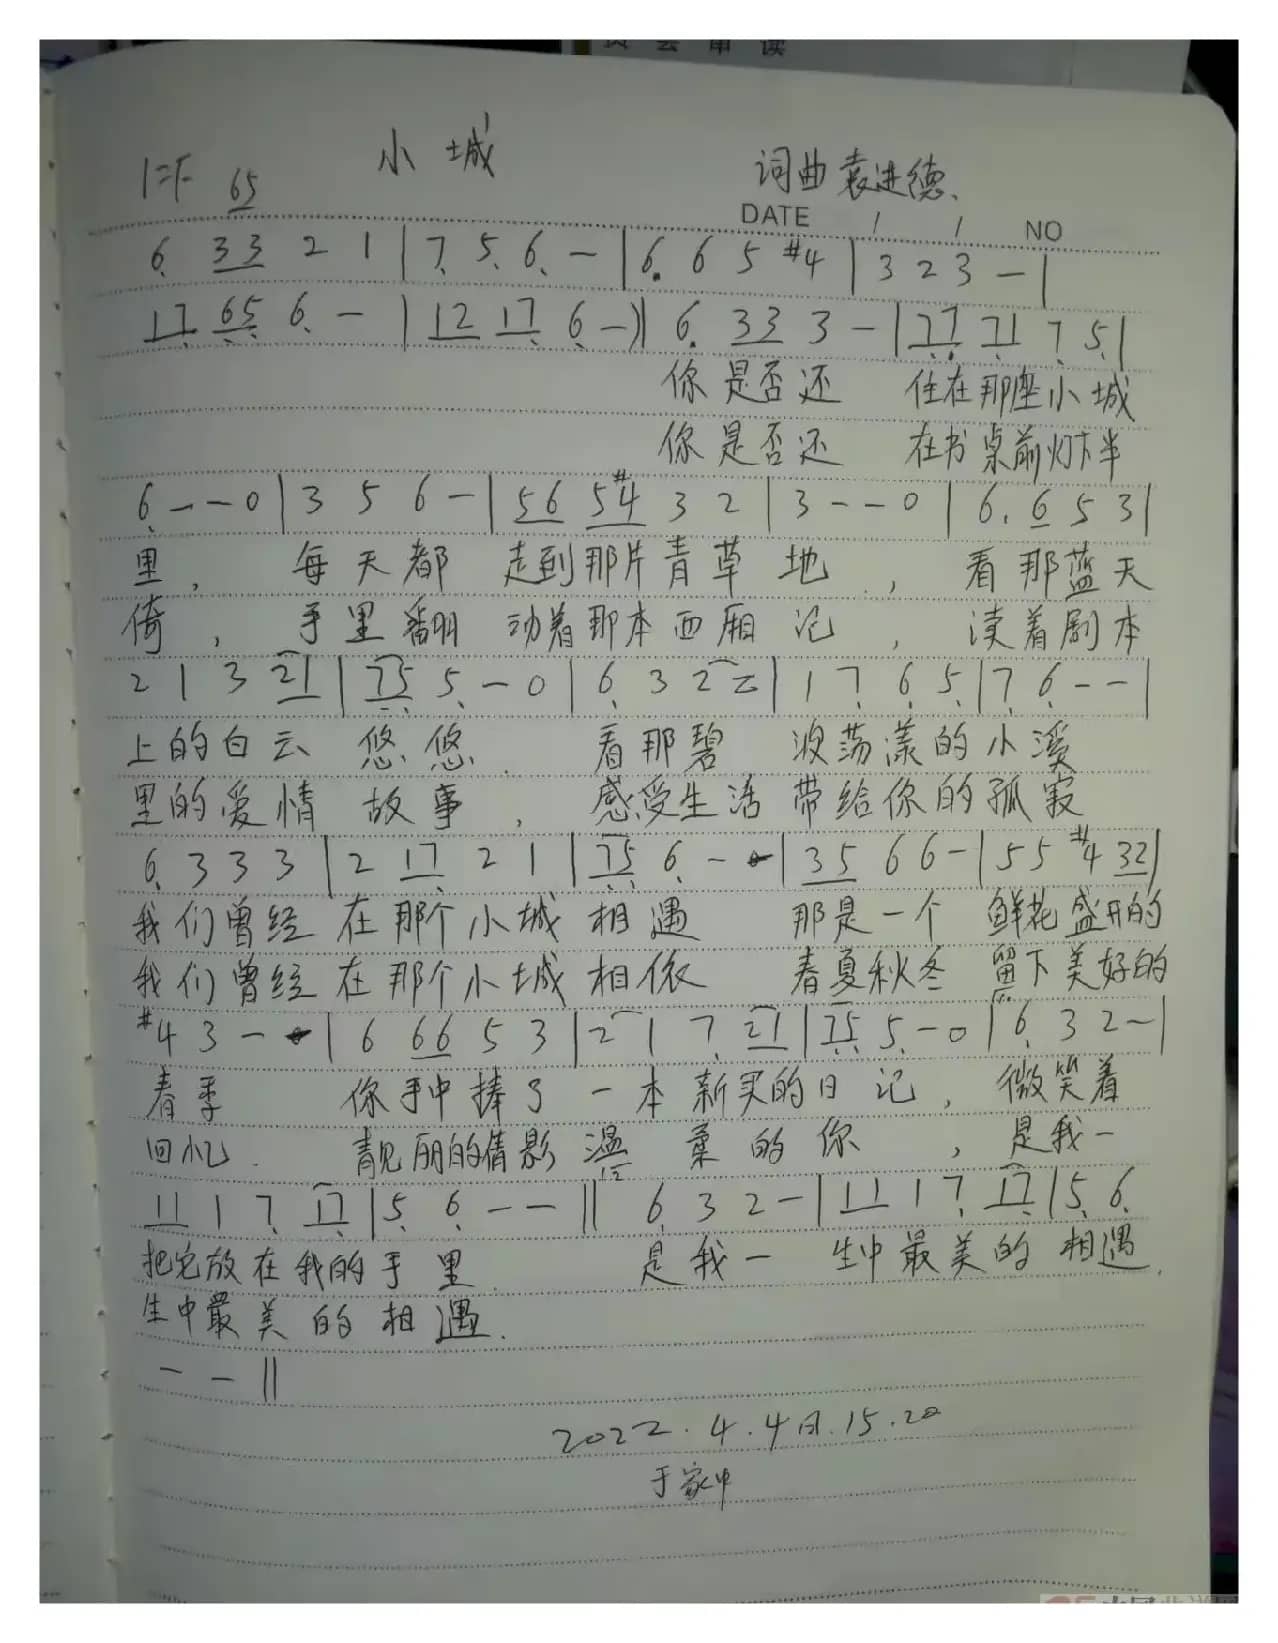 员会审读
小城
1=F 65 词曲袁进德、
DATE / / NO
6 33 2 1 | 7 5 6 - | 6. 6 5 #4 | 3 2 3 - |
17 65 6 - | 12 17 6 -)| 6. 33 3 - | 77 71 7 5 |
你是否还 住在那座小城
你是否还 在书桌前灯下半
6 - - 0 | 3 5 6 - | 56 5#4 3 2 | 3 - - 0 | 6. 6 5 3 |
里, 每天都 走到那片青草地, 看那蓝天
倚, 手里翻 动着那本西厢记, 读着剧本
2 1 3 21 | 75 5 - 0 | 6 3 2 2 | 1 7 6 5 | 7 6 - - |
上的白云 悠悠. 看那碧 波荡漾的小溪
里的爱情 故事, 感受生活 带给你的孤寂
6 3 3 3 | 2 17 2 1 | 75 6 - - | 35 6 6 - | 5 5 #4 32 |
我们曾经 在那个小城 相遇 那是一个 鲜花盛开的
我们曾经 在那个小城 相依 春夏秋冬 留下美好的
#4 3 - - | 6 66 5 3 | 2 1 7 21 | 75 5 - 0 | 6 3 2 - |
春季 你手中捧了 一本新买的日记, 微笑着
回忆. 靓丽的倩影 温柔的你, 是我一
11 1 7 17 | 5 6 - - || 6 3 2 - | 11 1 7 17 | 5 6
把它放在我的手里. 是我一 生中最美的相遇.
生中最美的相遇.
- - ||
2022.4.4日.15.20
于家中